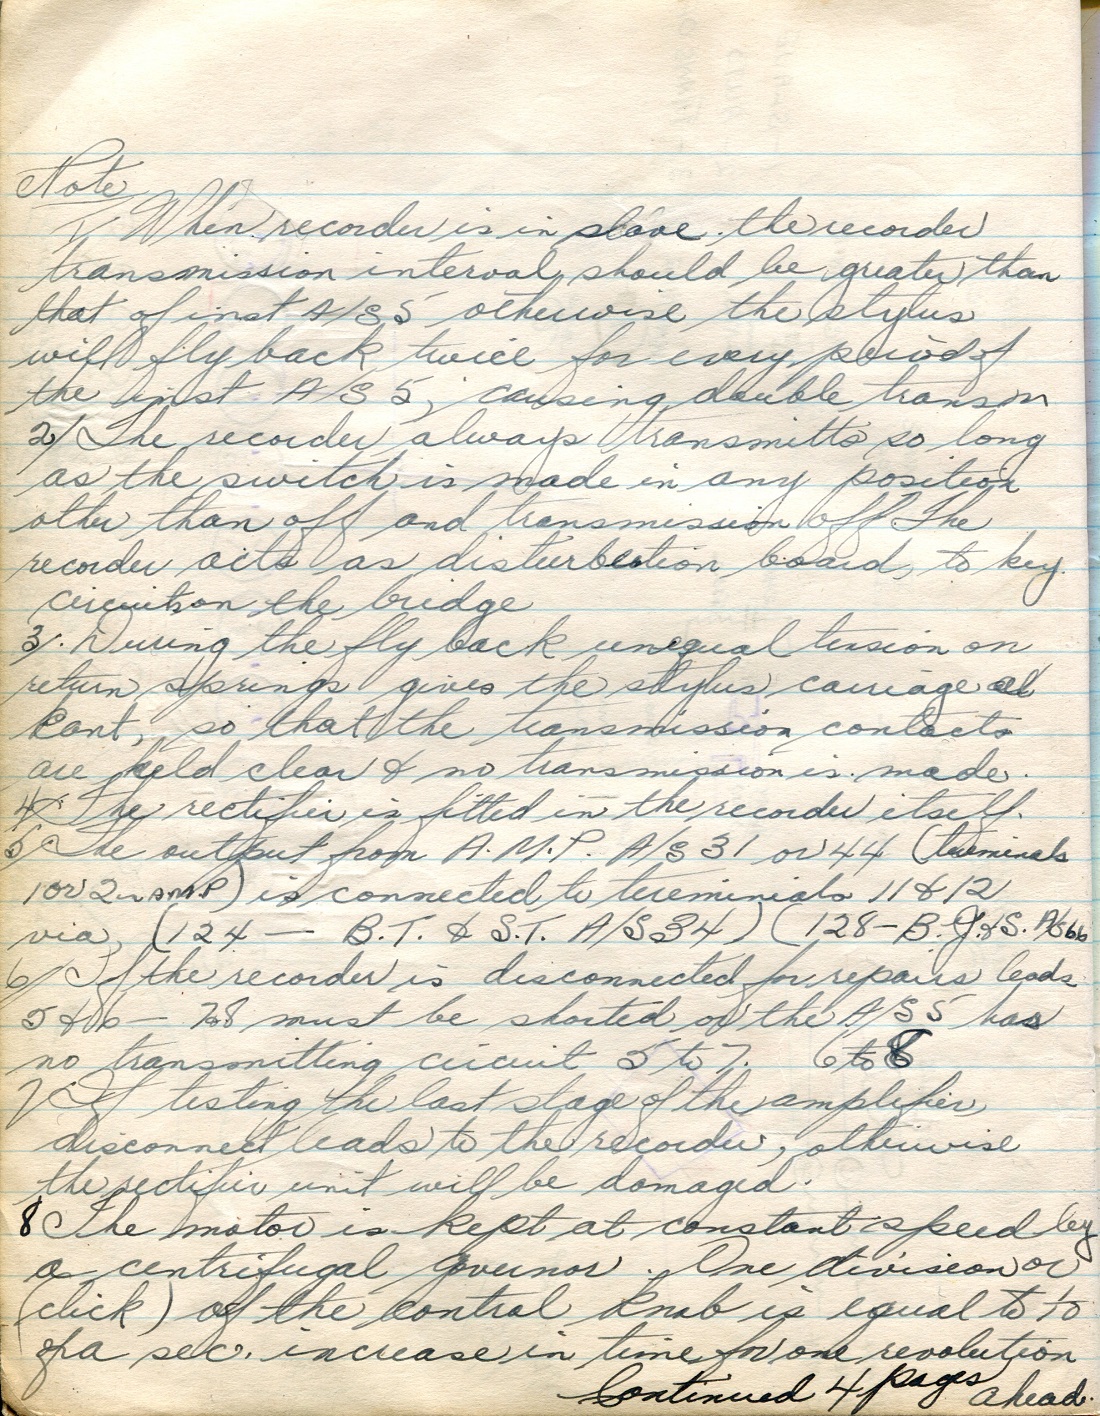 Note
1/ When recorder is in slave the recorder
transmission interval should be greater than
that of inst A/S 5 otherwise the stylus
will fly back twice for every period of
the inst A/S 5, causing double transm
2/ The recorder always transmitts so long
as the switch is made in any position
other than off and transmission off The
recorder acts as disturbution board, to key
circuits on the bridge
3/. During the fly back unequal tension on
return springs gives the stylus carriage a
cant, so that the transmission contacts
are held clear & no transmission is made.
4/ The rectifier is fitted in the recorder itself.
5/ The output from A.M.P. A/S 31 or 44 (terminals
1 or 2 in AMP) is connected to tereminials 11 & 12
via, (124 — B.T. & S.T. A/S 34) (128 – B.G. & S. A/S 66
6/ If the recorder is disconnected for repairs leads
5 & 6 — 7 & 8 must be shorted or the A/S 5 has
no transmitting circuit 5 to 7. 6 to 8
7/ If testing the last stage of the amplifier
disconnect leads to the recorder, otherwise
the rectifier unit will be damaged.
8 The motor is kept at constant speed by
a centrifugal governor. One division or
(click) of the control knob is equal to
of a sec. increase in time for one revolution
Continued 4 pages ahead.